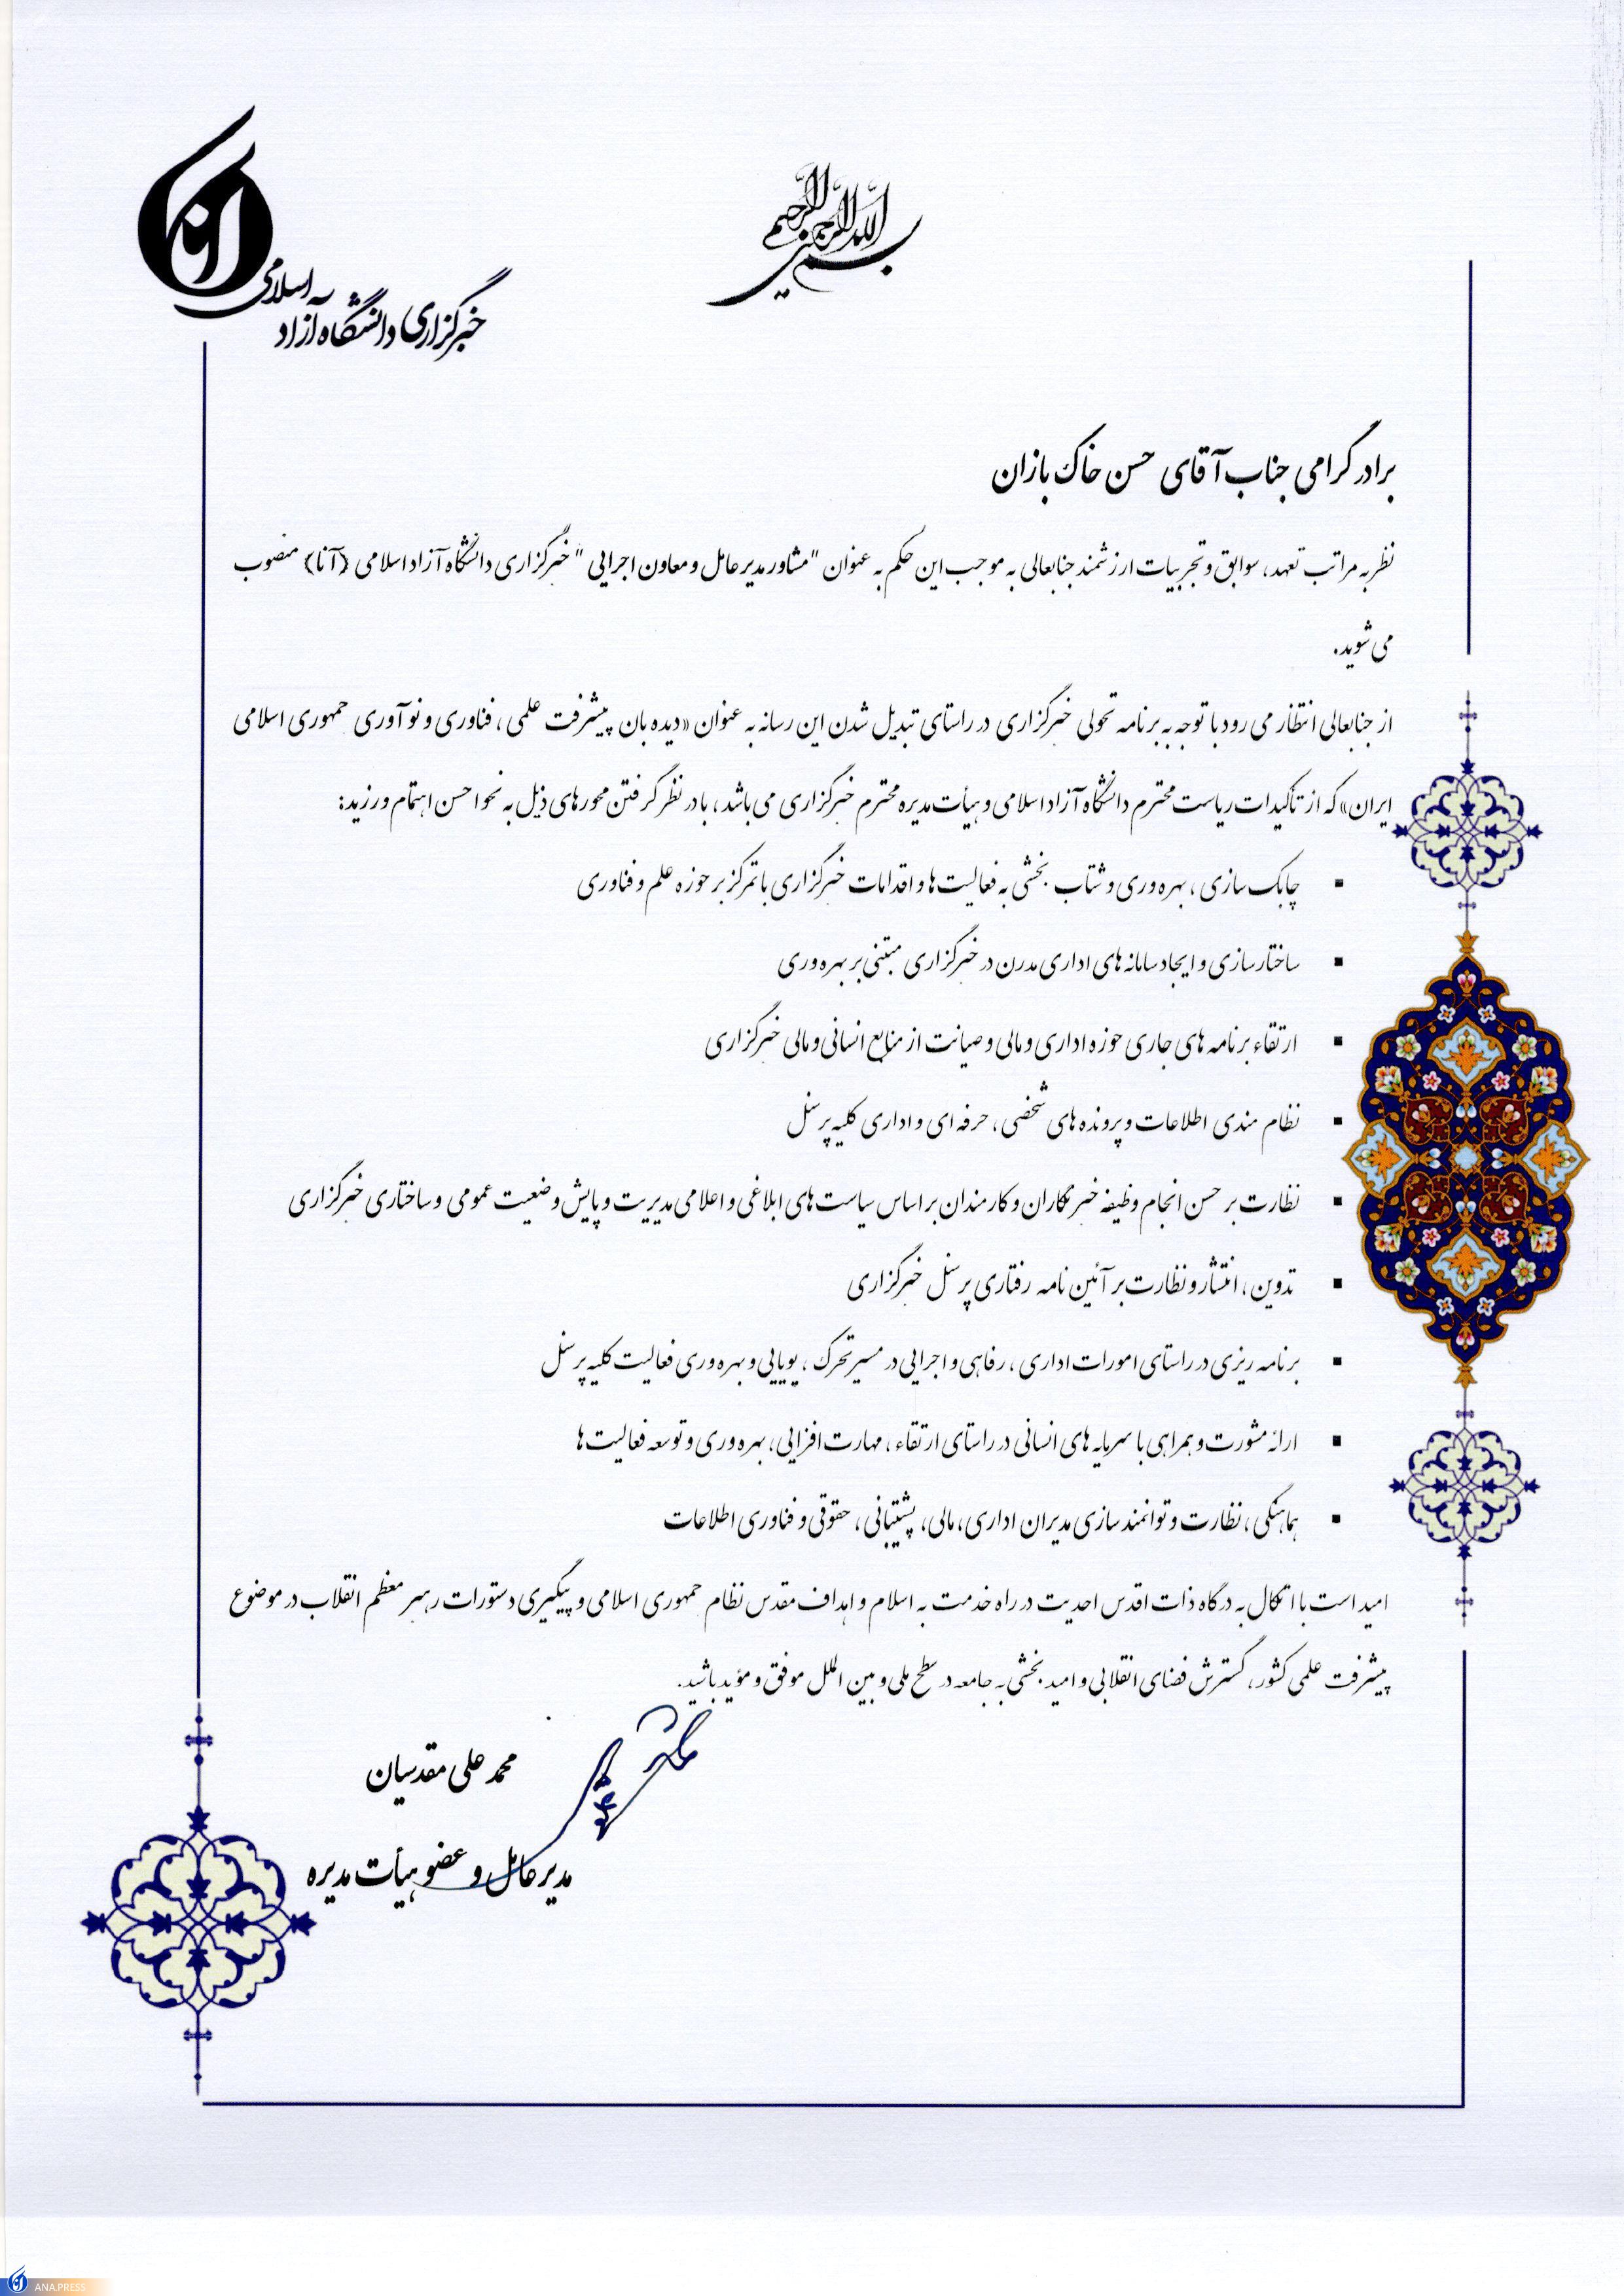 بسم الله الرحمن الرحیم
آنا
خبرگزاری دانشگاه آزاد اسلامی
برادر گرامی جناب آقای حسن خاک بازان
نظر به مراتب تعهد، سوابق و تجربیات ارزشمند جنابعالی به موجب این حکم به عنوان "مشاور مدیرعامل و معاون اجرایی" خبرگزاری دانشگاه آزاد اسلامی (آنا) منصوب
می شوید.
از جنابعالی انتظار می رود با توجه به برنامه تحولی خبرگزاری در راستای تبدیل شدن این رسانه به عنوان «دیده بان پیشرفت علمی، فناوری و نوآوری جمهوری اسلامی
ایران» که از تأکیدات ریاست محترم دانشگاه آزاد اسلامی و هیأت مدیره محترم خبرگزاری می باشد، با در نظر گرفتن محورهای ذیل به نحو احسن اهتمام ورزید:
▪ چابک سازی، بهره وری و شتاب بخشی به فعالیت ها و اقدامات خبرگزاری با تمرکز بر حوزه علم و فناوری
▪ ساختارسازی و ایجاد سامانه های اداری مدرن در خبرگزاری مبتنی بر بهره وری
▪ ارتقاء برنامه های جاری حوزه اداری و مالی و صیانت از منابع انسانی و مالی خبرگزاری
▪ نظام مندی اطلاعات و پرونده های شخصی، حرفه ای و اداری کلیه پرسنل
▪ نظارت بر حسن انجام وظیفه خبرنگاران و کارمندان بر اساس سیاست های ابلاغی و اعلامی مدیریت و پایش وضعیت عمومی و ساختاری خبرگزاری
▪ تدوین، انتشار و نظارت بر آئین نامه رفتاری پرسنل خبرگزاری
▪ برنامه ریزی در راستای امورات اداری، رفاهی و اجرایی در مسیر تحرک، پویایی و بهره وری فعالیت کلیه پرسنل
▪ ارائه مشورت و همراهی با سرمایه های انسانی در راستای ارتقاء، مهارت افزایی، بهره وری و توسعه فعالیت ها
▪ هماهنگی، نظارت و توانمندسازی مدیران اداری، مالی، پشتیبانی، حقوقی و فناوری اطلاعات
امید است با اتکال به درگاه ذات اقدس احدیت در راه خدمت به اسلام و اهداف مقدس نظام جمهوری اسلامی و پیگیری دستورات رهبر معظم انقلاب در موضوع
پیشرفت علمی کشور، گسترش فضای انقلابی و امید بخشی به جامعه در سطح ملی و بین الملل موفق و مؤید باشید.
محمد علی مقدسیان
مدیرعامل و عضو هیأت مدیره
آنا ANA.PRESS